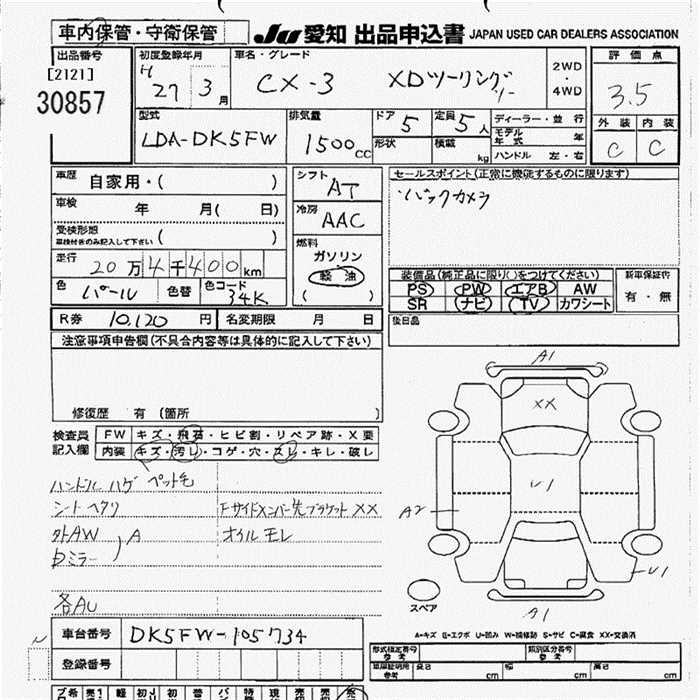 車内保管・守衛保管
JU 愛知 出品申込書 JAPAN USED CAR DEALERS ASSOCIATION
出品番号
[2121]
30857
初度登録年月
H 27 3月
車名・グレード
CX-3 XDツーリング
2WD
・
4WD
評価点
3.5
外装 内装
C C
型式
LDA-DK5FW
排気量
1500cc
ドア 5
定員 5人
形状
積載 kg
ディーラー・並行
モデル年式 年
ハンドル 左・右
車歴 自家用・( )
車検 年 月( 日)
受検形態
車検付きのみ記入して下さい ( )
走行 20万4千400km
色 パール 色替 色コード 34K
シフト AT
冷房 AAC
燃料
ガソリン
軽油
( )
セールスポイント(正常に機能するものに限ります)
・バックカメラ
装備品(純正品に限り○をつけてください)
PS PW エアB AW
SR ナビ TV カワシート
新車保証書
有・無
R券 10,120円 名変期限 月 日
後日品
注意事項申告欄(不具合内容等は具体的に記入して下さい)
修復歴 有(箇所 )
検査員記入欄
FW キズ・飛石・ヒビ割・リペア跡・X要
内装 キズ・汚レ・コゲ・穴・スレ・キレ・破レ
ハンドル ハゲ ペット毛
シート ヘタリ Fサイドメンバー先ブラケット XX
外AW A オイルモレ
ミラー
各AU
A1
XX
U1
A2
U1
A1
スペア
A=キズ E=エクボ U=凹み W=補修跡 S=サビ C=腐食 XX=交換済
車台番号 DK5FW-105734
登録番号
形式指定番号 参考
類別区分番号 参考
車庫証明用 参考 長さ cm 幅 cm 高さ cm